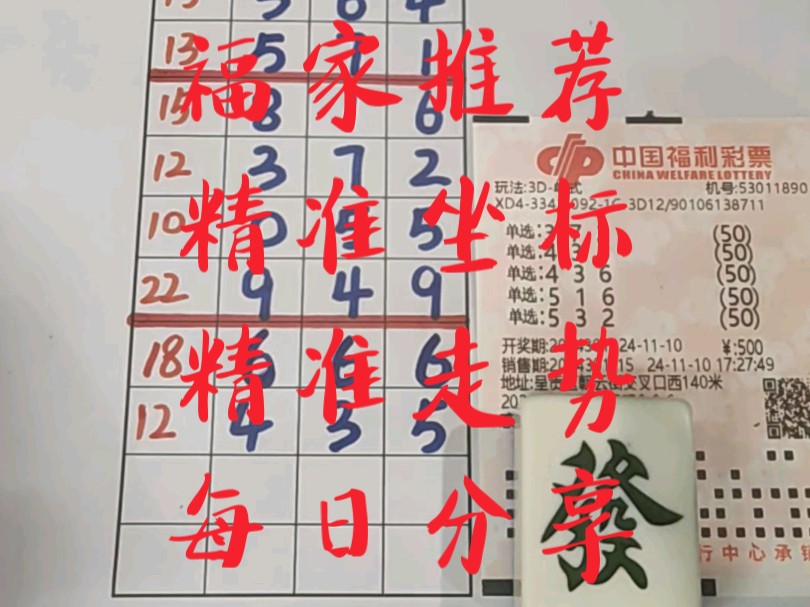 福家推荐
精准坐标
精准走势
每日分享
13 5 7 1
15 8 6
12 3 7 2
10 0 5 5
22 9 4 9
18 6 6 6
12 4 3 5
中国福利彩票
CHINA WELFARE LOTTERY
玩法:3D-单式 机号:53011890
90106138711
单选: (50)
单选: (50)
单选:4 3 6 (50)
单选:5 1 6 (50)
单选:5 3 2 (50)
开奖期: 24-11-10 ¥:500
销售期: 24-11-10 17:27:49
地址: 叉口西140米
發
行中心承销